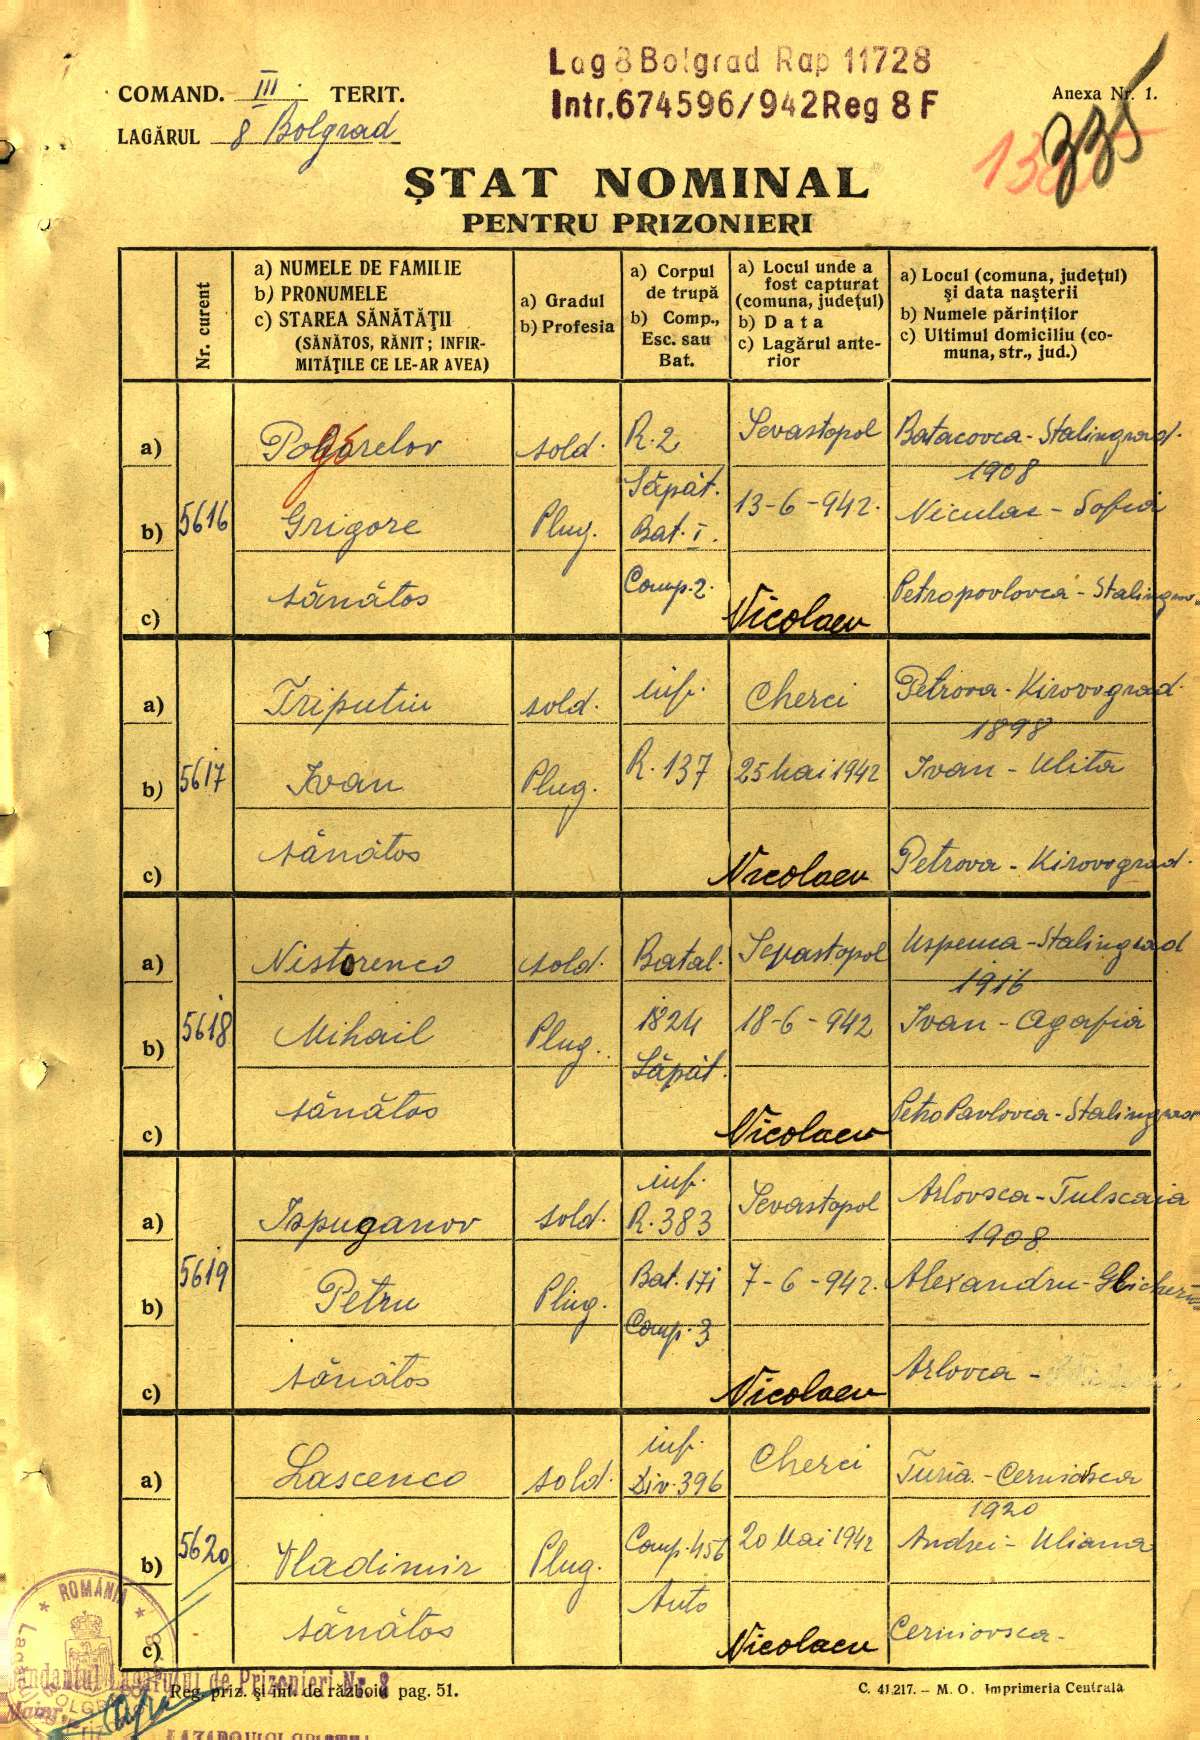 Lag 8 Bolgrad Rap 11728
Intr. 674596/942 Reg 8 F
COMAND. III TERIT.
LAGĂRUL 8 Bolgrad
Anexa Nr. 1.
335
ȘTAT NOMINAL
PENTRU PRIZONIERI
Nr. curent
a) NUMELE DE FAMILIE
b) PRONUMELE
c) STAREA SĂNĂTĂȚII
(SĂNĂTOS, RĂNIT; INFIR-
MITĂȚILE CE LE-AR AVEA)
a) Gradul
b) Profesia
a) Corpul
de trupă
b) Comp.,
Esc. sau
Bat.
a) Locul unde a
fost capturat
(comuna, județul)
b) Data
c) Lagărul ante-
rior
a) Locul (comuna, județul)
și data nașterii
b) Numele părinților
c) Ultimul domiciliu (co-
muna, str., jud.)
5616
a) Pogorelov sold. R. 2 Sevastopol Batacovca - Stalingrad.
1908
b) Grigore Plug. Săpăt. Bat. I. 13-6-942. Niculae - Sofia
c) sănătos Comp. 2. Nicolaev Petropovlovca - Stalingrad
5617
a) Triputin sold. inf. Cherci Petrova - Kirovograd.
1898
b) Ivan Plug. R. 137 25 Mai 1942 Ivan - Ulita
c) sănătos Nicolaev Petrova - Kirovograd.
5618
a) Nistorenco sold. Batal. Sevastopol Uspenca - Stalingrad
1916
b) Mihail Plug. 1824 Săpăt. 18-6-942 Ivan - Agafia
c) sănătos Nicolaev Petro Pavlovca - Stalingrad
5619
a) Ispuganov sold. inf. R. 383 Sevastopol Arlovsca - Tulscaia
1908
b) Petru Plug. Bat. 171 7-6-942. Alexandru - Glicheria
Comp. 3
c) sănătos Nicolaev Arlovca -
5620
a) Lascenco sold. inf. Div. 396 Cherci Turia - Cerniovsca
1920
b) Vladimir Plug. Comp. 456 20 Mai 1942 Andrei - Uliana
Auto
c) sănătos Nicolaev Cerniovsca -
ROMÂNIA
Comandantul Lagărului de Prizonieri Nr. 8
Reg. priz. și int. de războiu pag. 51.
C. 41.217. – M. O. Imprimeria Centrală